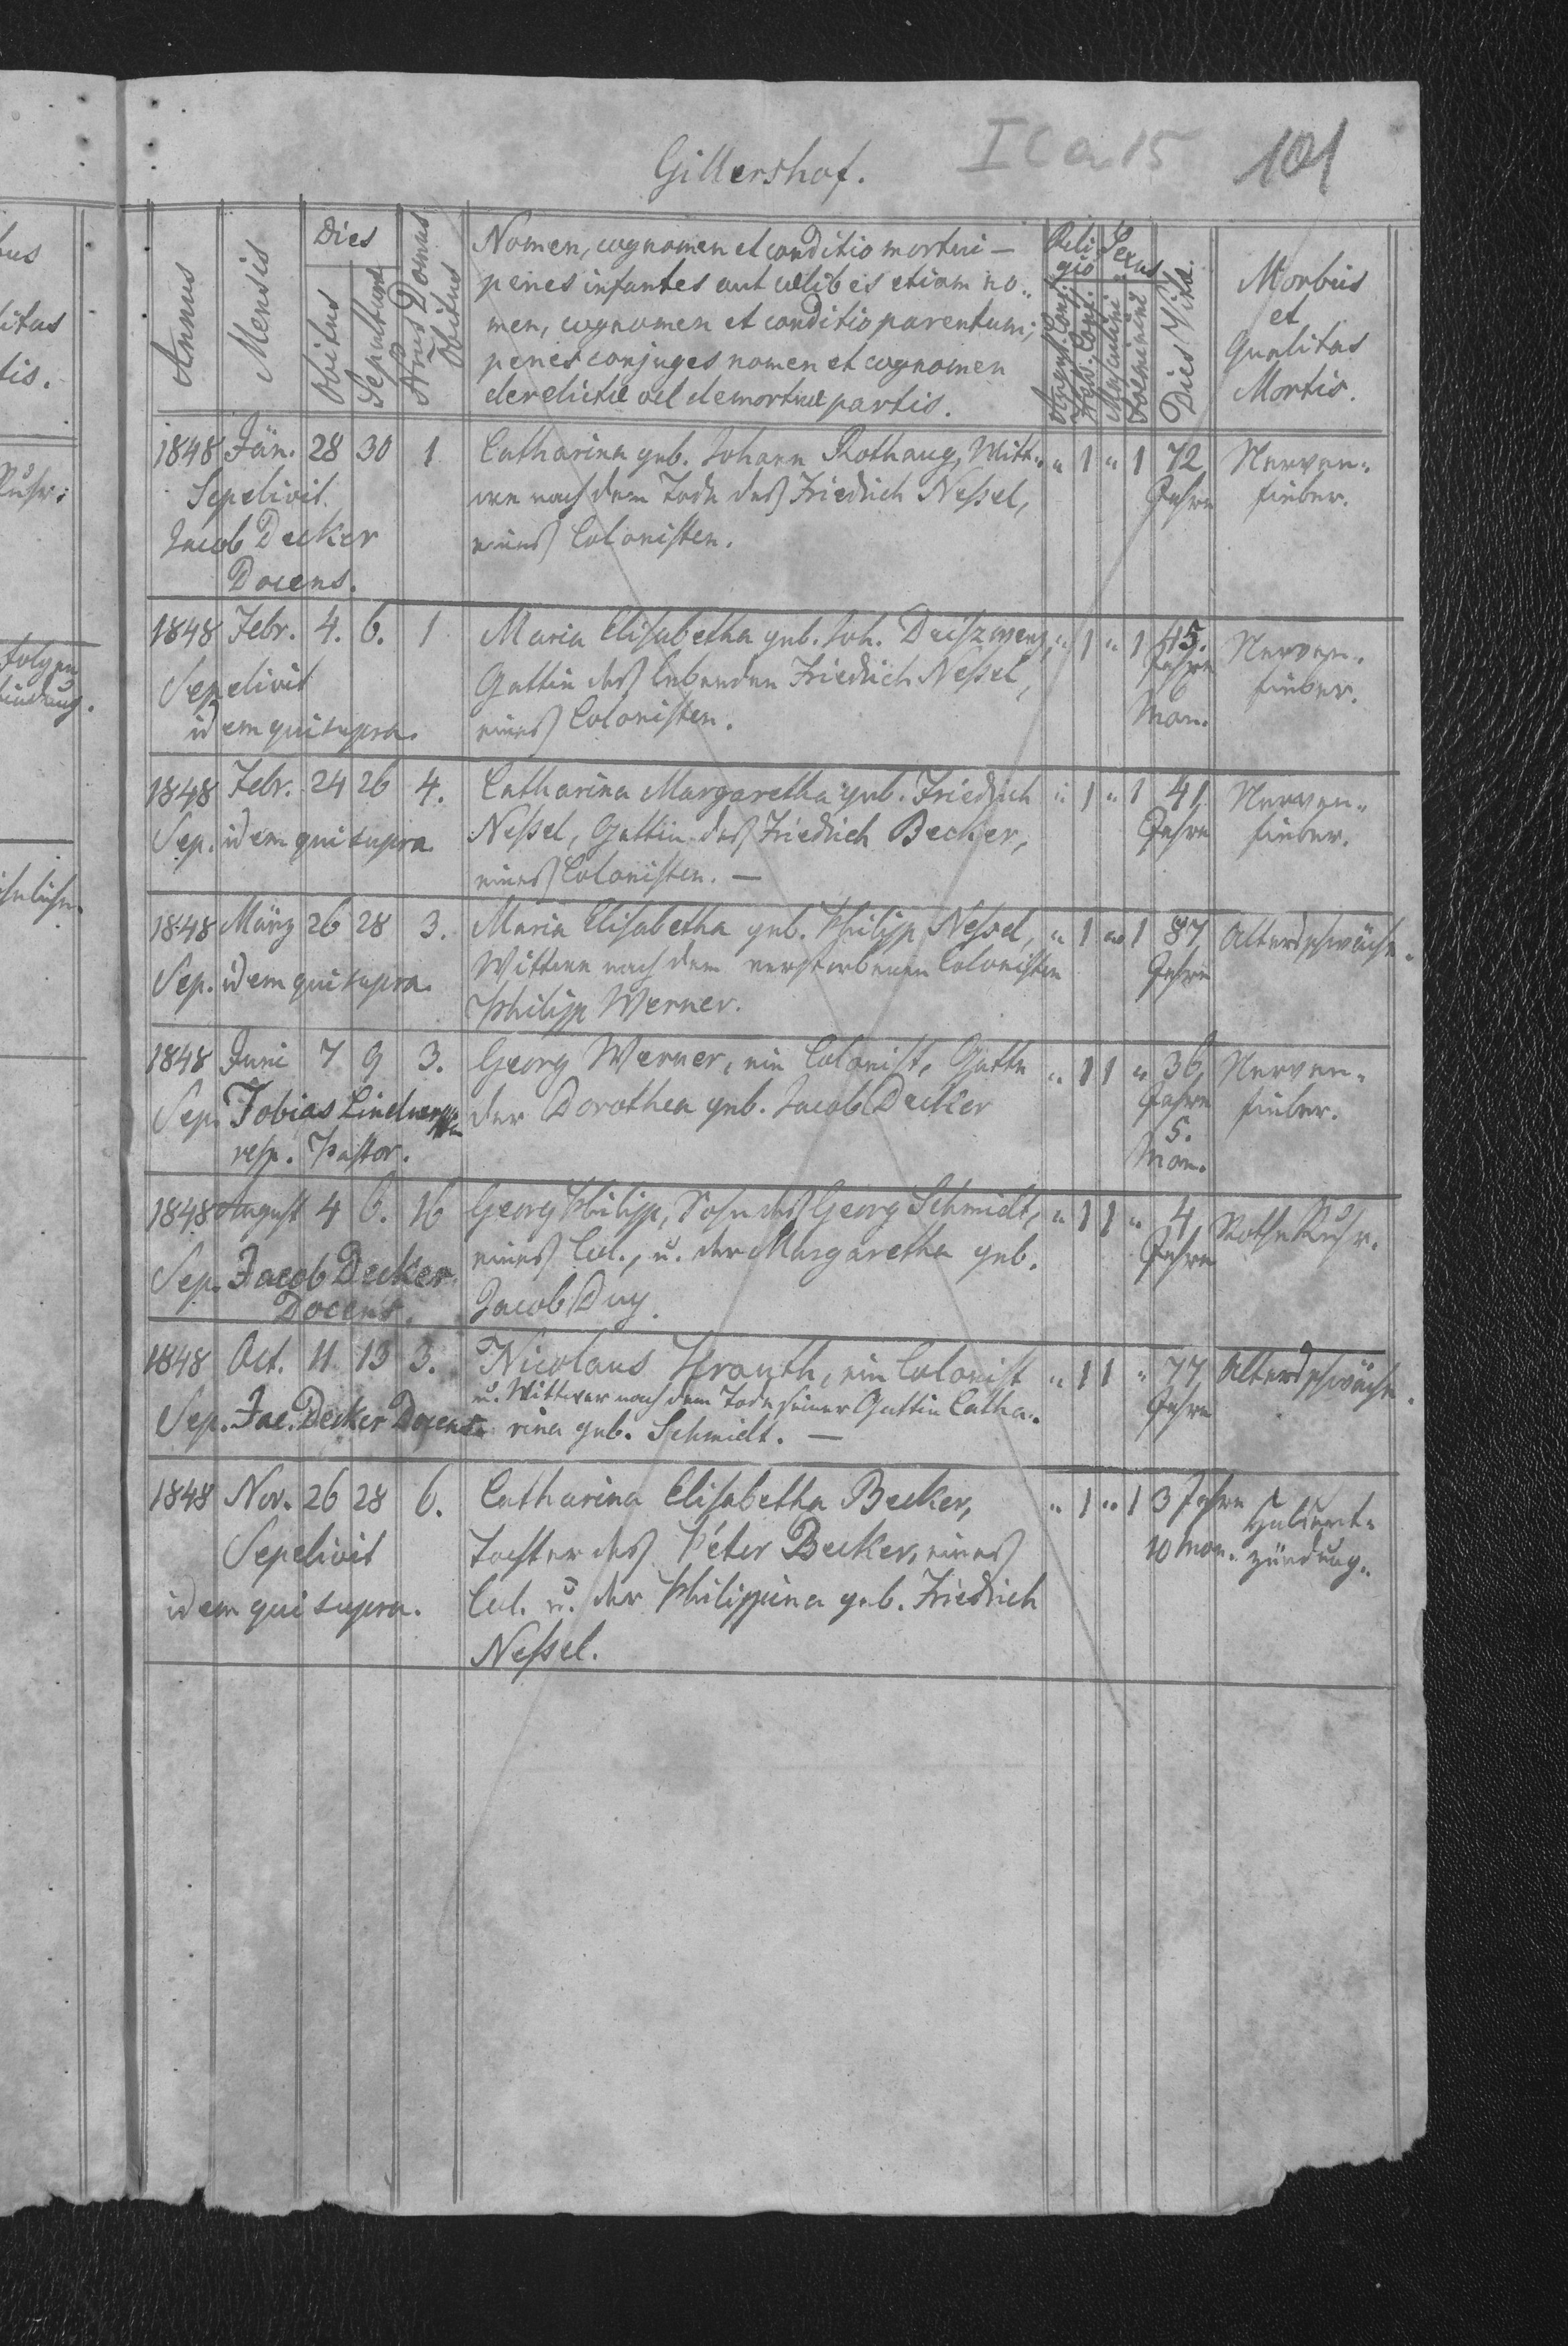 I C a 15
101
Gillershof.
Annus
Mensis
Dies
Obitus
Sepulturae
Nrus Domus
Obitus
Nomen, cognomen et conditio mortui —
penes infantes aut coelibes etiam no-
men, cognomen et conditio parentum;
penes conjuges nomen et cognomen
derelictae vel demortuae partis.
Reli-
gio
Sexus
August. Conf.
Helv. Conf.
Masculini
Foeminini
Dies Vitae.
Morbus
et
Qualitas
Mortis.
1848 Jän. 28 30 1 Catharina geb. Johann Rothaug, Witt- " 1 " 1 72 Nerven-
Sepelivit we nach dem Tode des Friedrich Neßel, Jahre fieber.
Jacob Decker eines Colonisten.
Docens.
1848 Febr. 4. 6. 1 Maria Elisabetha geb. Joh. Deiszweng, " 1 " 1 45. Nerven-
Sepelivit Gattin des lebenden Friedrich Neßel, Jahre fieber.
idem qui supra. eines Colonisten. 6 Mon.
1848 Febr. 24 26 4. Catharina Margaretha geb. Friedrich " 1 " 1 41 Nerven-
Sep. idem qui supra Neßel, Gattin des Friedrich Becker, Jahre fieber.
eines Colonisten. —
1848 März 26 28 3. Maria Elisabetha geb. Philipp Neßel, " 1 " 1 87 Altersschwäche.
Sep. idem qui supra. Wittwe nach dem verstorbenen Colonisten Jahre
Philipp Werner.
1848 Juni 7 9 3. Georg Werner, ein Colonist, Gatte " 1 1 " 36 Nerven-
Sep. Tobias Lindner der Dorothea geb. Jacob Decker Jahre fieber.
resp. Pastor. 5. Mon.
1848 August 4 6. 16 Georg Philipp, Sohn des Georg Schmidt, " 1 1 " 4 Rothe Ruhr.
Sep. Jacob Decker eines Col., u. der Margaretha geb. Jahre
Docens. Jacob Duy.
1848 Oct. 11 13 3. Nicolaus Krauth, ein Colonist " 1 1 " 77 Altersschwäche.
u. Wittwer nach dem Tode seiner Gattin Catha- Jahre
Sep. Jac. Decker Docens. rina geb. Schmidt. —
1848 Nov. 26 28 6. Catharina Elisabetha Becker, " 1 " 1 3 Jahre Halsent-
Sepelivit Tochter des Peter Becker, eines 10 Mon. zündung.
idem qui supra. Col. u. der Philippina geb. Friedrich
Neßel.